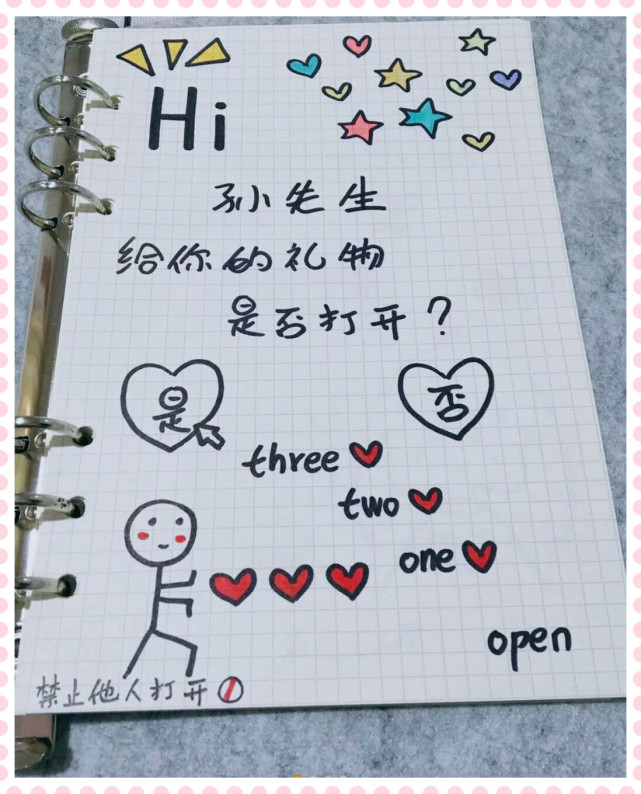 Hi
孙先生
给你的礼物
是否打开？
是
否
three
two
one
open
禁止他人打开